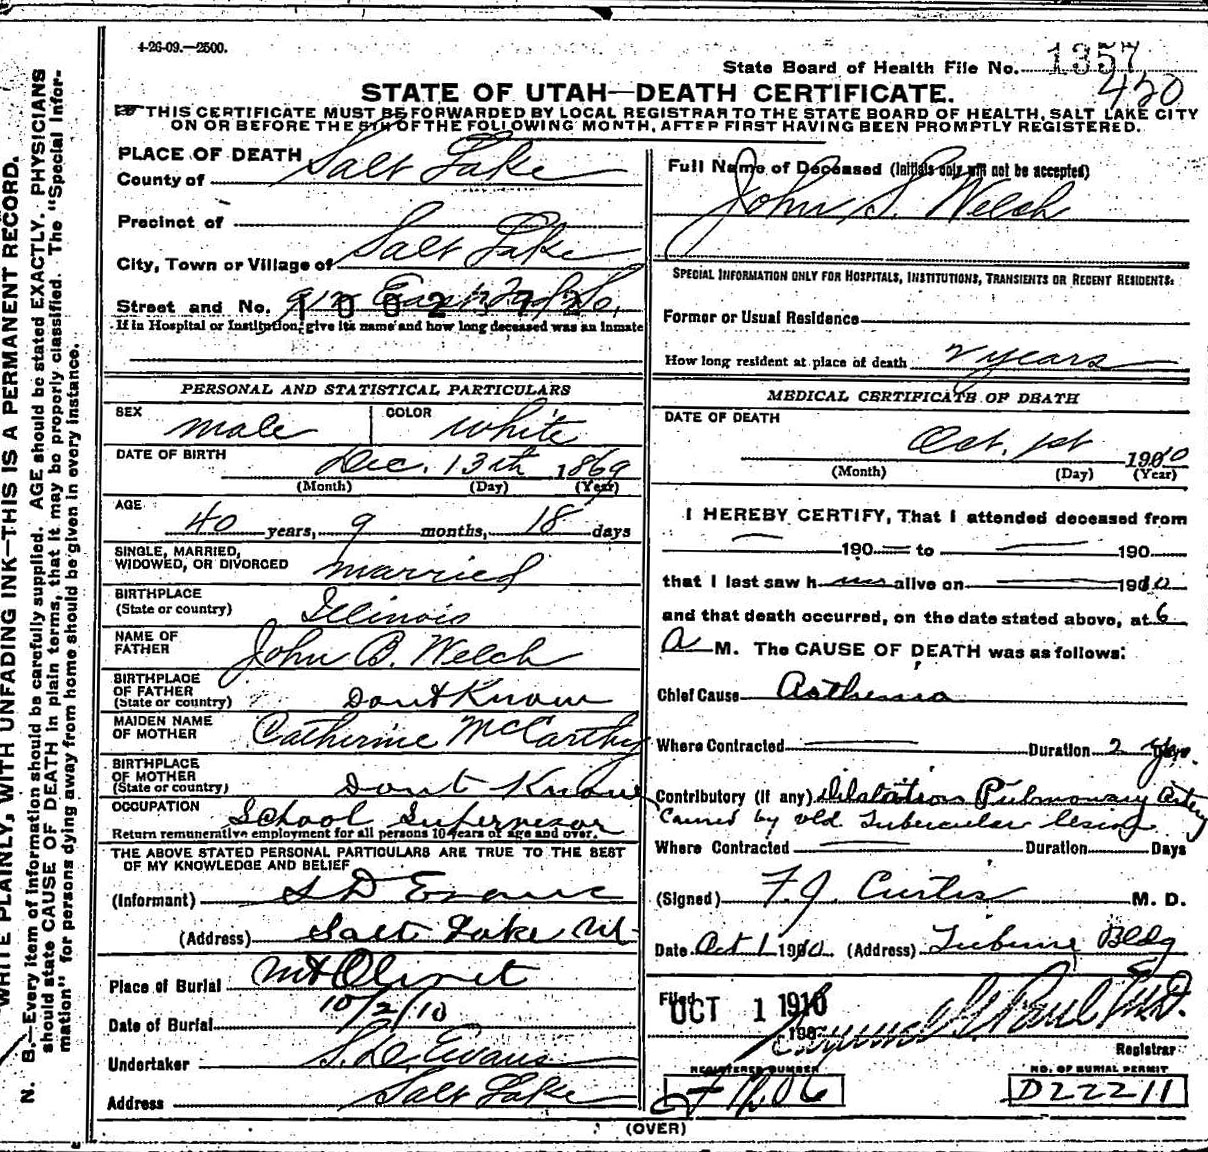 4-26-09.—2500.
State Board of Health File No. 1357
420
STATE OF UTAH—DEATH CERTIFICATE.
THIS CERTIFICATE MUST BE FORWARDED BY LOCAL REGISTRAR TO THE STATE BOARD OF HEALTH, SALT LAKE CITY
ON OR BEFORE THE 5TH OF THE FOLLOWING MONTH, AFTER FIRST HAVING BEEN PROMPTLY REGISTERED.
PLACE OF DEATH
County of Salt Lake
Precinct of
City, Town or Village of Salt Lake
Street and No. East So.
If in Hospital or Institution, give its name and how long deceased was an inmate
PERSONAL AND STATISTICAL PARTICULARS
SEX male COLOR white
DATE OF BIRTH Dec. 13th 1869
(Month) (Day) (Year)
AGE 40 years, 9 months, 18 days
SINGLE, MARRIED,
WIDOWED, OR DIVORCED married
BIRTHPLACE
(State or country) Illinois
NAME OF
FATHER John B. Welch
BIRTHPLACE
OF FATHER
(State or country) Dont Know
MAIDEN NAME
OF MOTHER Catherine McCarthy
BIRTHPLACE
OF MOTHER
(State or country) Dont Know
OCCUPATION School Supervisor
Return remunerative employment for all persons 10 years of age and over.
THE ABOVE STATED PERSONAL PARTICULARS ARE TRUE TO THE BEST
OF MY KNOWLEDGE AND BELIEF
(Informant) S D Evans
(Address) Salt Lake Ut
Place of Burial Mt Olivet
Date of Burial 10/2/10
Undertaker S. D. Evans
Address Salt Lake
Full Name of Deceased (Initials only will not be accepted)
John S. Welch
SPECIAL INFORMATION ONLY FOR HOSPITALS, INSTITUTIONS, TRANSIENTS OR RECENT RESIDENTS:
Former or Usual Residence
How long resident at place of death years
MEDICAL CERTIFICATE OF DEATH
DATE OF DEATH
Oct. 1st 1910
(Month) (Day) (Year)
I HEREBY CERTIFY, That I attended deceased from
190 to 190
that I last saw h im alive on 1910
and that death occurred, on the date stated above, at 6
A M. The CAUSE OF DEATH was as follows:
Chief Cause Asthenia
Where Contracted Duration 2 yrs.
Contributory (if any) Dilatation Pulmonary artery
Caused by old Tubercular lesion
Where Contracted Duration Days
(Signed) F. J. Curtis M. D.
Date Oct 1 1910 (Address) Tribune Bldg
Filed OCT 1 1910
190
Registrar
REGISTERED NUMBER
NO. OF BURIAL PERMIT
D22211
(OVER)
N. B.—Every item of information should be carefully supplied. AGE should be stated EXACTLY. PHYSICIANS
should state CAUSE OF DEATH in plain terms, that it may be properly classified. The "Special Infor-
mation" for persons dying away from home should be given in every instance.
WRITE PLAINLY, WITH UNFADING INK—THIS IS A PERMANENT RECORD.